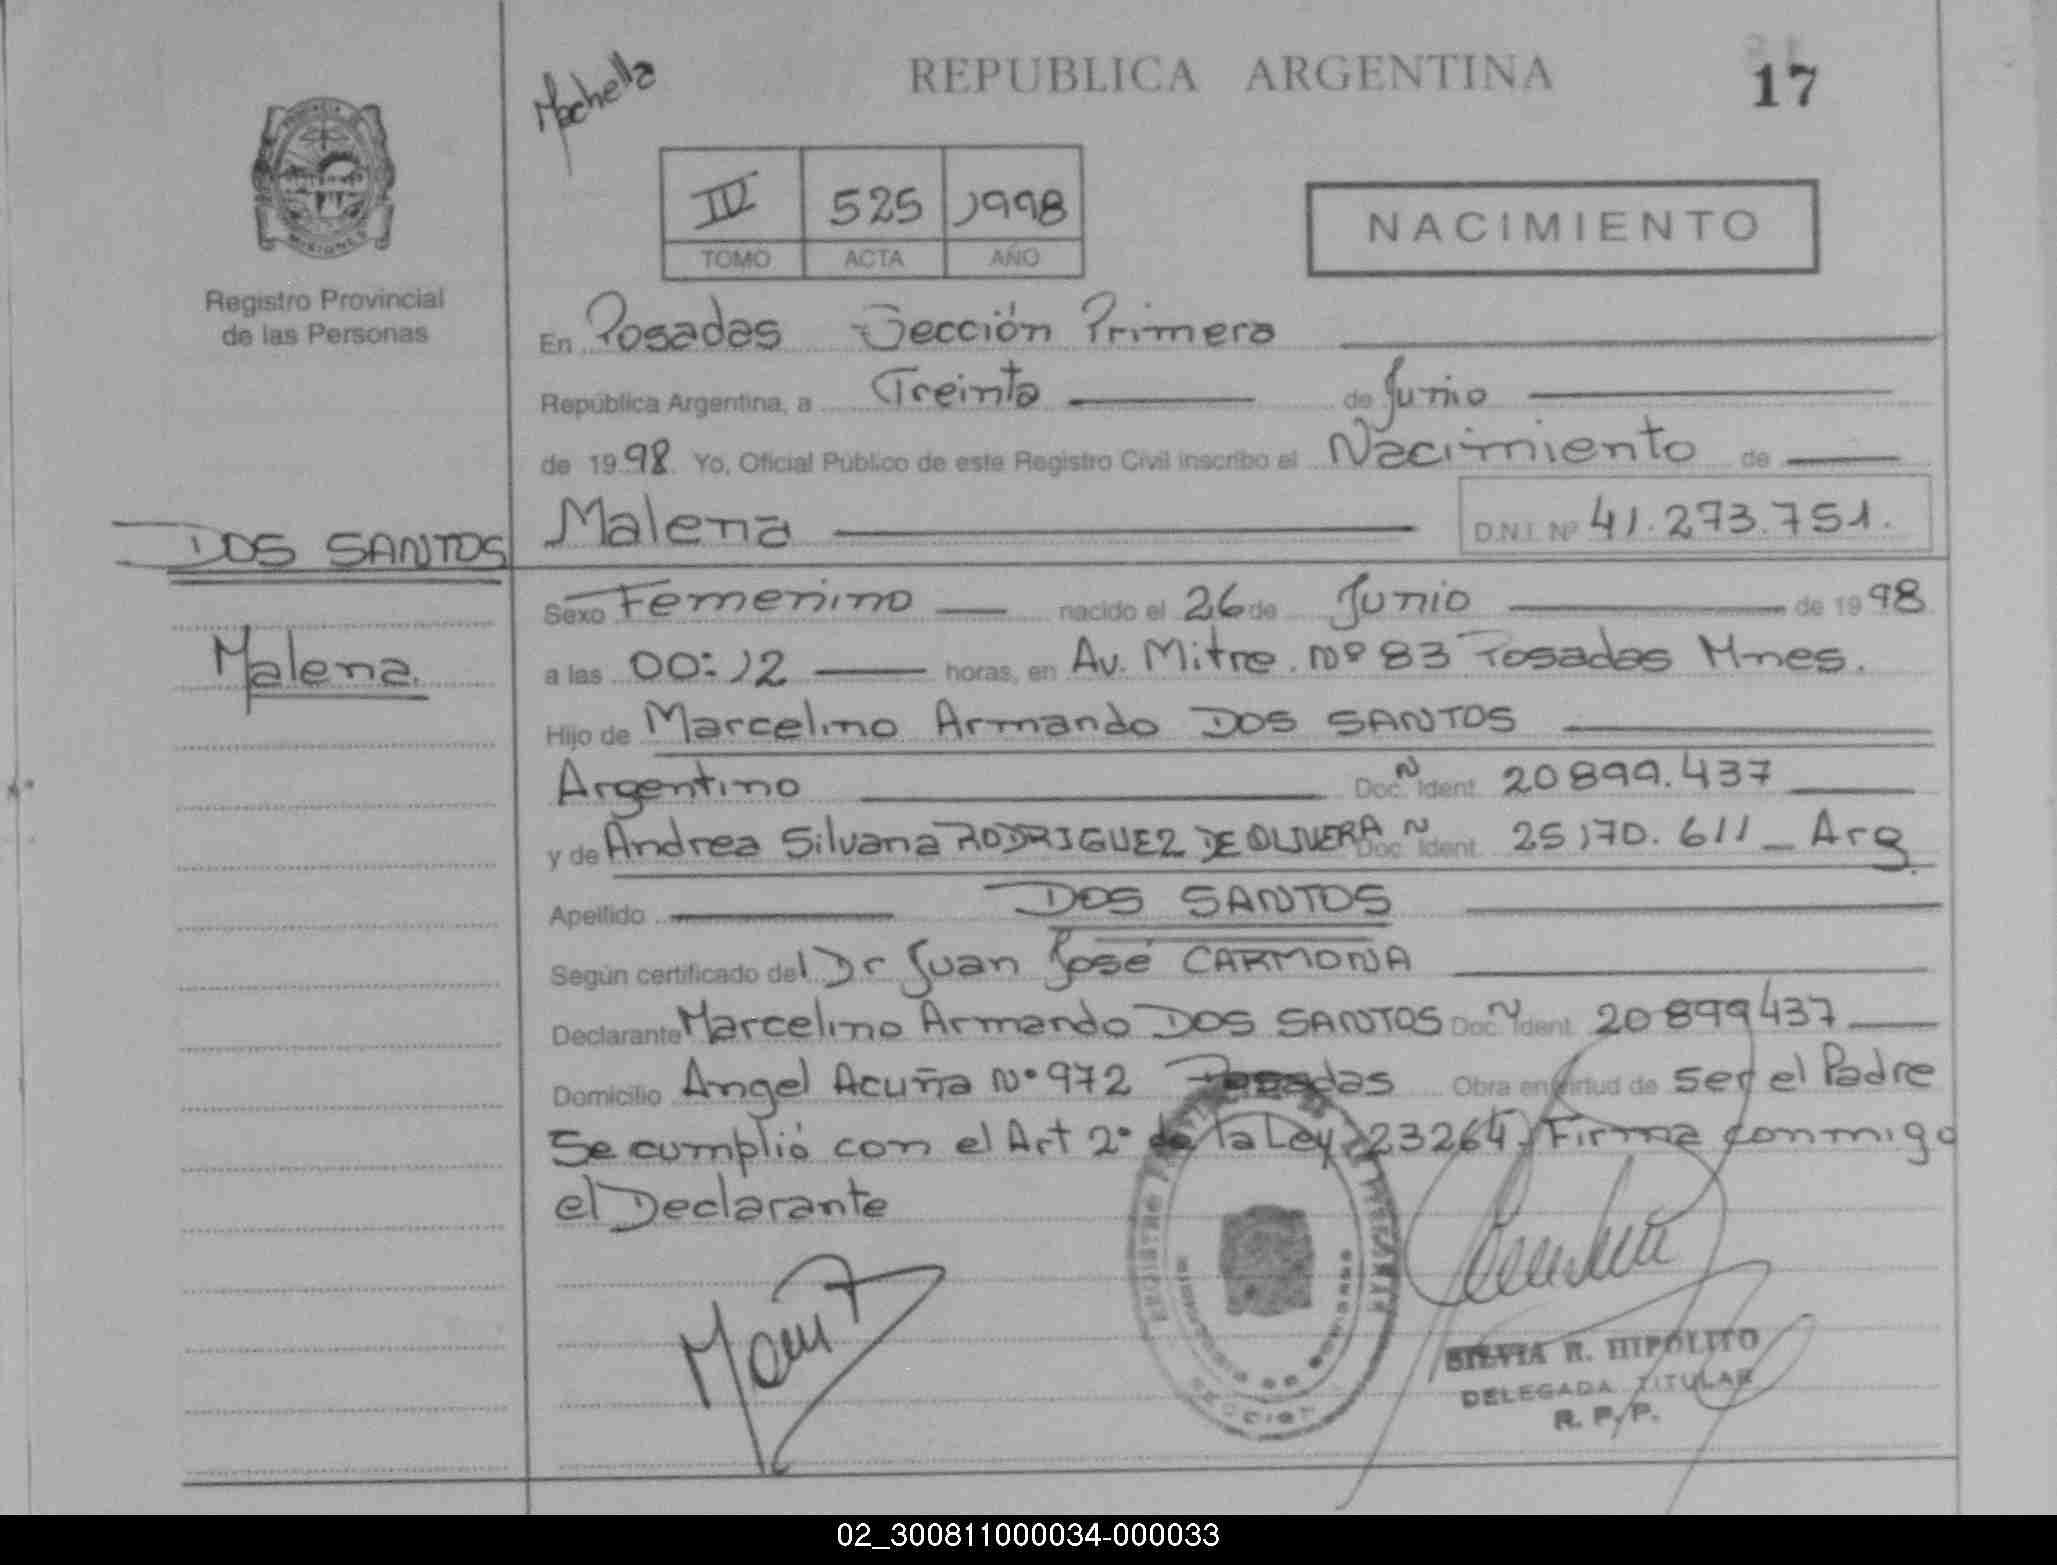 Machella
REPUBLICA ARGENTINA
17
IV 525 1998
TOMO ACTA AÑO
NACIMIENTO
PROVINCIA DE
MISIONES
Registro Provincial
de las Personas
En Posadas Sección Primera
República Argentina, a Treinta de Junio
de 19 98. Yo, Oficial Público de este Registro Civil inscribo el Nacimiento de
DOS SANTOS
Malena
Malena D.N.I. Nº 41.273.751.
Sexo Femenino nacido el 26 de Junio de 19 98
a las 00:12 horas, en Av. Mitre. Nº 83 Posadas Mnes.
Hijo de Marcelino Armando DOS SANTOS
Argentino Doc. Ident. 20899.437
y de Andrea Silvana RODRIGUEZ DE OLIVERA Doc. Ident. 25170.611 _ Arg
Apellido DOS SANTOS
Según certificado del Dr Juan José CARMONA
Declarante Marcelino Armando DOS SANTOS Doc. Ident. 20899437
Domicilio Angel Acuña Nº 972 Posadas Obra en virtud de ser el Padre
Se cumplió con el Art 2º de la Ley 23264. Firma conmigo
el Declarante
SILVIA R. HIPOLITO
DELEGADA TITULAR
R. P. P.
SECCION
02_300811000034-000033